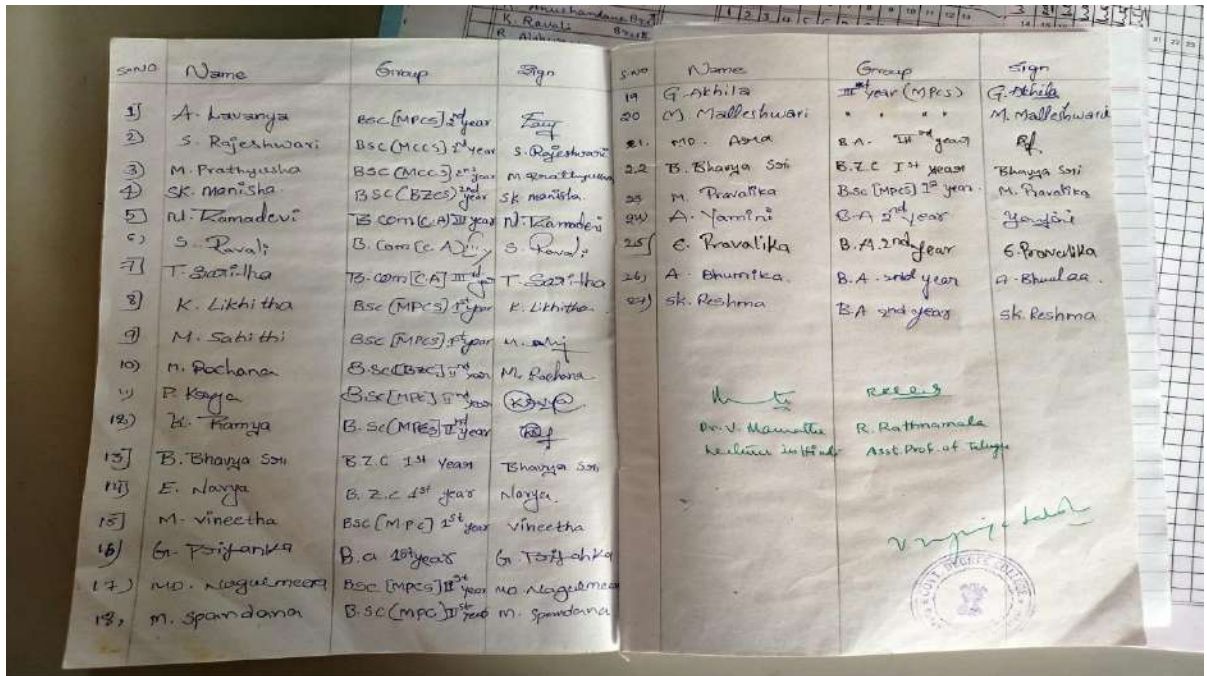 K. Ravali
S.NO Name Group Sign
1) A. Lavanya BSC [MPCS] 2nd year
2) S. Rajeshwari BSC (MCCS) year S. Rajeshwari
3) M. Prathyusha BSC (MCCS) 2nd year M. Prathyusha
4) SK. Manisha BSC (BZCS) 2nd year SK Manisha.
5) N. Ramadevi B.com (C.A) III year N. Ramadevi
6) S. Ravali B. Com (C. A) " S. Ravali
7) T. Saritha B. com [CA] III T. Saritha
8) K. Likhitha BSC (MPCS) 1st year K. Likhitha
9) M. Sahithi BSC [MPCS] 1st year
10) M. Rachana B.SC [BZC] II nd year M. Rachana
11) P. Kavya B.SC [MPC] II nd year Kavya
12) K. Ramya B. SC (MPCS) II nd year
13] B. Bhavya Sri B.Z.C 1st Year Bhavya Sri
14] E. Navya B. Z. C 1st year Navya.
15] M. Vineetha BSC [M.P.C] 1st year Vineetha
16) G. Priyanka B.a 1st year G. Priyanka
17) MD. Nagulmeera BSC [MPCS] year MD Nagulmeera
18, M. Spandana B.SC (MPC) year M. Spandana
S.NO Name Group Sign
19 G. Akhila year (MPCS) G. Akhila
20 M. Malleshwari " " " M. Malleshwari
21. MD. Asma B.A. year
22 B. Bhavya Sri B.Z.C Ist year Bhavya Sri
23 M. Pravalika B.Sc [MPCS] year. M. Pravalika
24) A. Yamini B.A 2nd year Yamini
25) E. Pravalika B.A. 2nd year E. Pravalika
26) A. Bhumika. B.A. 2nd year
27) SK. Reshma B.A 2nd year SK. Reshma
Dr. V. Mamatha R. Rathnamala
Lecturer in Hindi Asst. Prof. of Telugu
GOVT. DEGREE COLLEGE